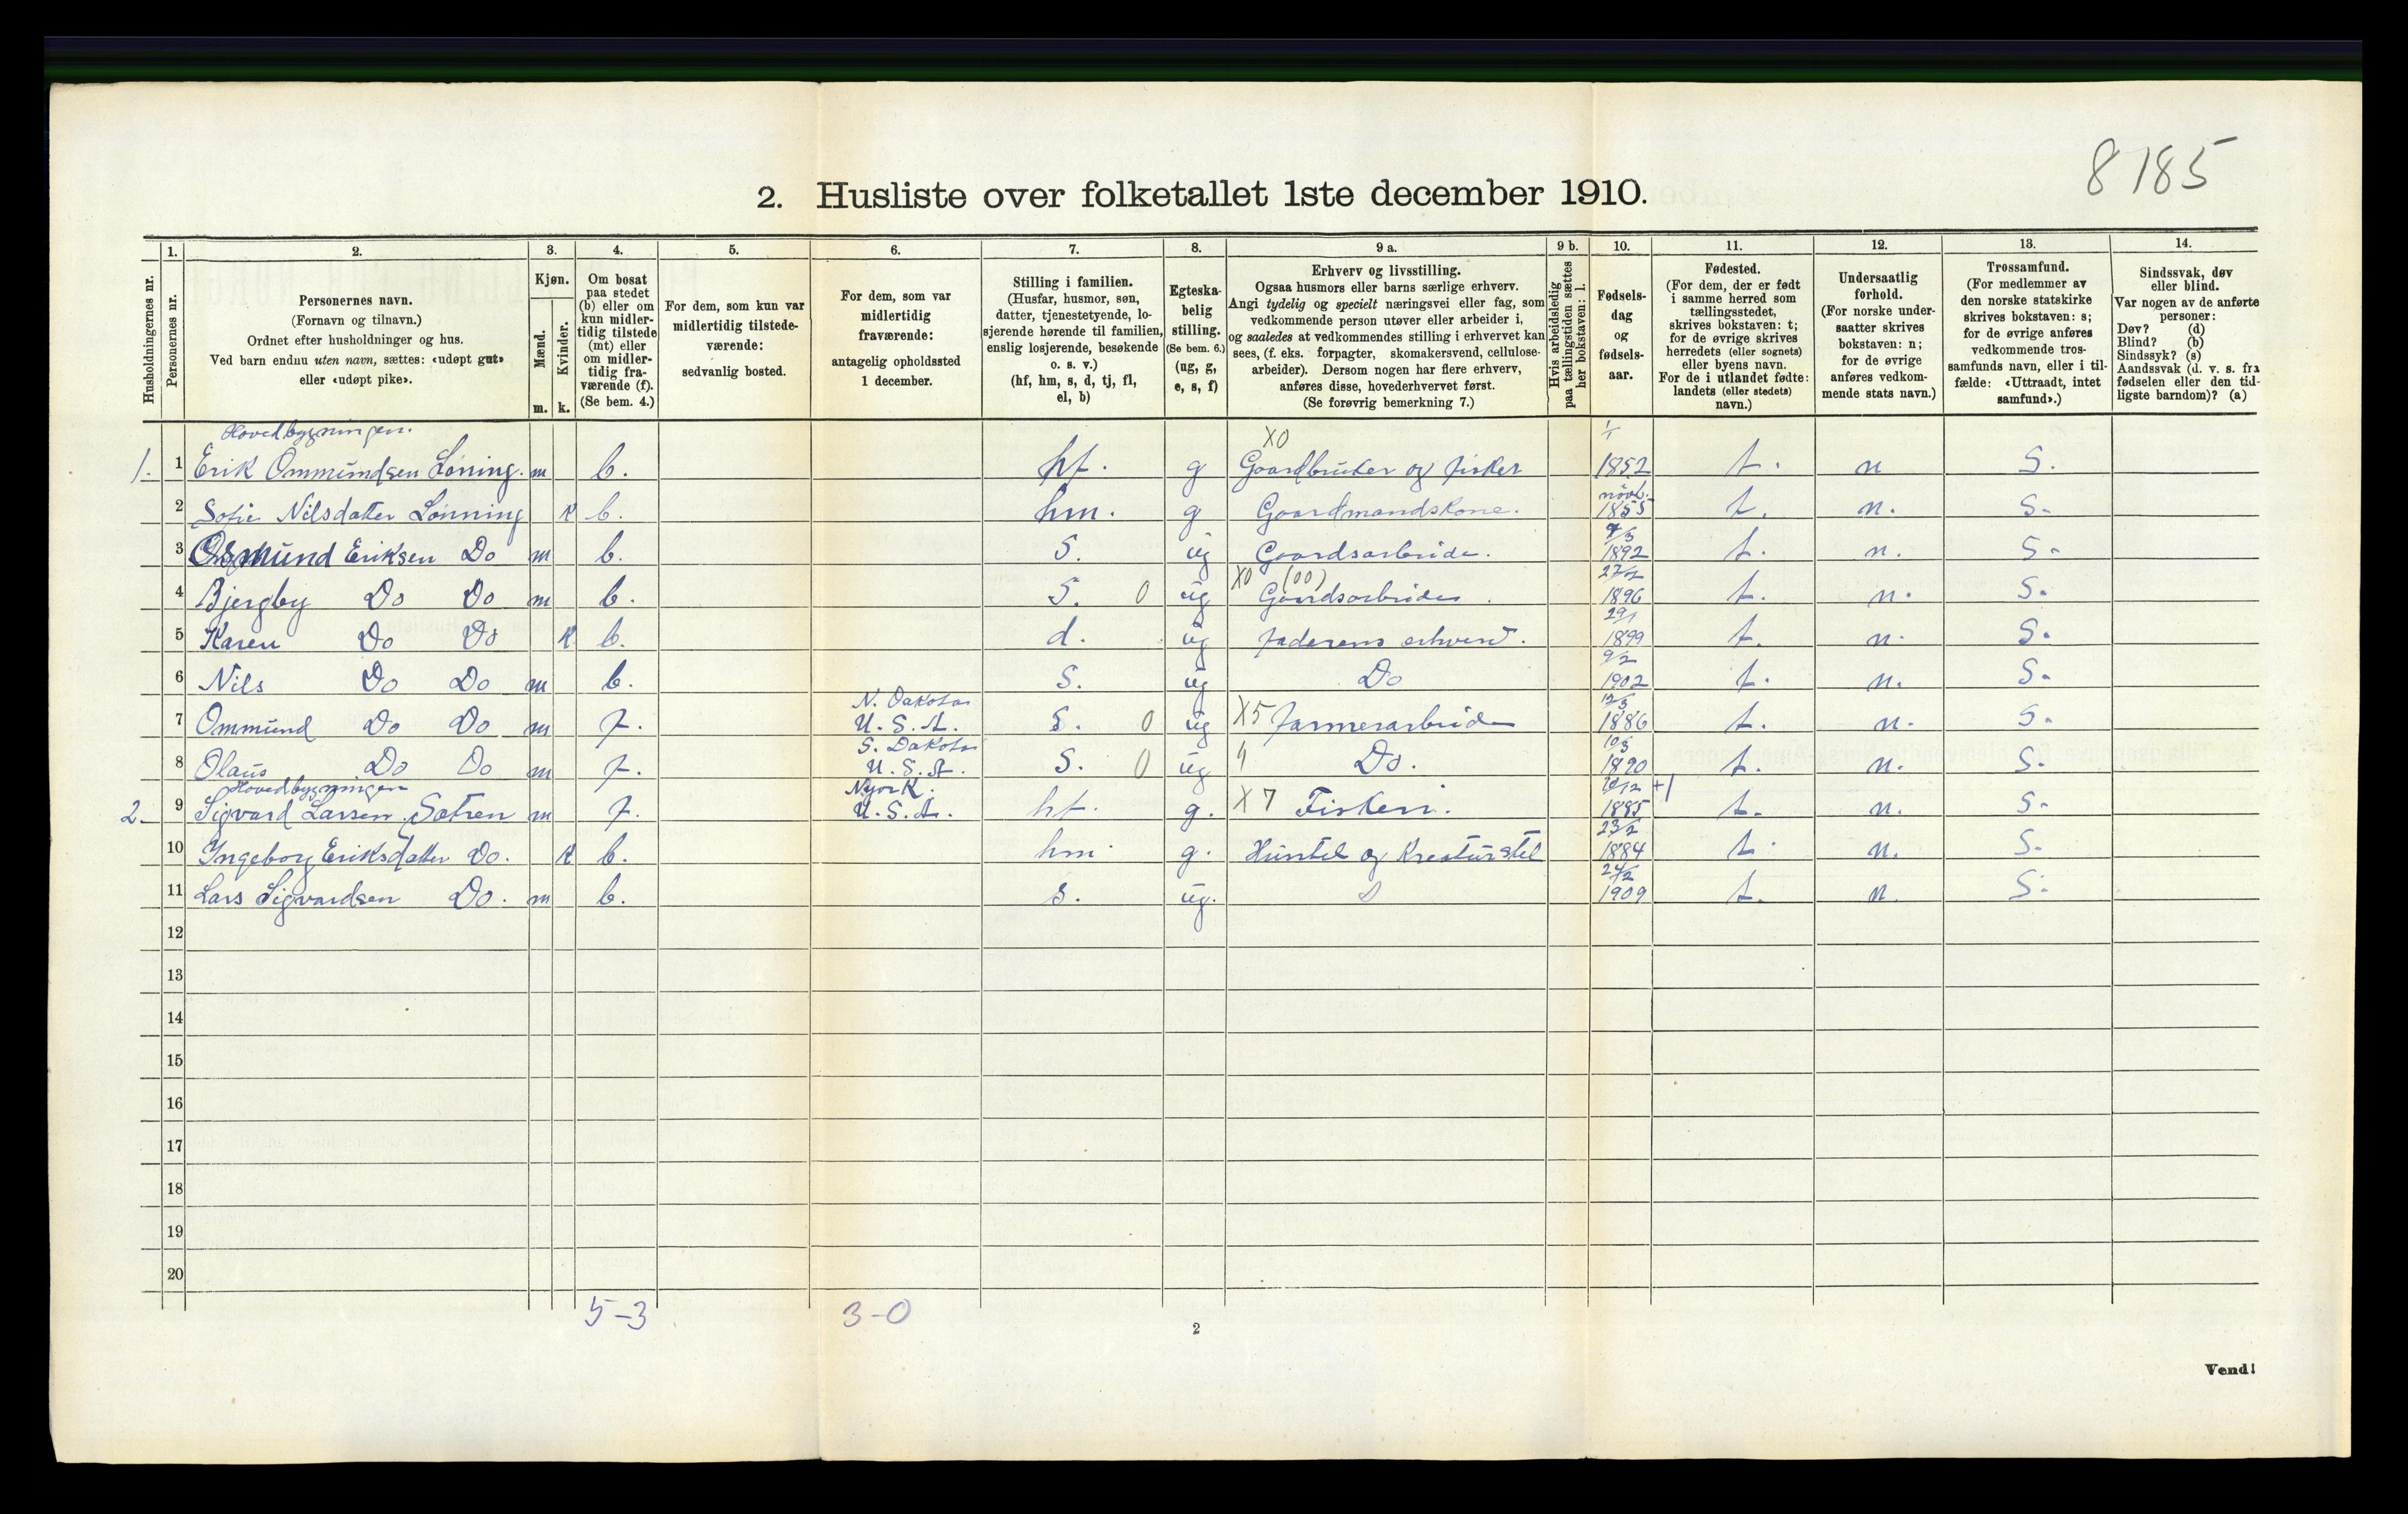 8185
2. Husliste over folketallet 1ste december 1910.
Husholdningernes nr.
1. Personernes nr.
2. Personernes navn.
(Fornavn og tilnavn.)
Ordnet efter husholdninger og hus.
Ved barn endnu uten navn, sættes: «udøpt gut»
eller «udøpt pike».
3. Kjøn.
Mænd. m.
Kvinder. k.
4. Om bosat
paa stedet
(b) eller om
kun midler-
tidig tilstede
(mt) eller
om midler-
tidig fra-
værende (f).
(Se bem. 4.)
5. For dem, som kun var
midlertidig tilstede-
værende:
sedvanlig bosted.
6. For dem, som var
midlertidig
fraværende:
antagelig opholdssted
1 december.
7. Stilling i familien.
(Husfar, husmor, søn,
datter, tjenestetyende, lo-
sjerende hørende til familien,
enslig losjerende, besøkende
o. s. v.)
(hf, hm, s, d, tj, fl,
el, b)
8. Egteska-
belig
stilling.
(Se bem. 6.)
(ug, g,
e, s, f)
9 a. Erhverv og livsstilling.
Ogsaa husmors eller barns særlige erhverv.
Angi tydelig og specielt næringsvei eller fag, som
vedkommende person utøver eller arbeider i,
og saaledes at vedkommendes stilling i erhvervet kan
sees, (f. eks. forpagter, skomakersvend, cellulose-
arbeider). Dersom nogen har flere erhverv,
anføres disse, hovederhvervet først.
(Se forøvrig bemerkning 7.)
9 b. Hvis arbeidsledig
paa tællingstiden sættes
her bokstaven: l.
10. Fødsels-
dag
og
fødsels-
aar.
11. Fødested.
(For dem, der er født
i samme herred som
tællingsstedet,
skrives bokstaven: t;
for de øvrige skrives
herredets (eller sognets)
eller byens navn.
For de i utlandet fødte:
landets (eller stedets)
navn.)
12. Undersaatlig
forhold.
(For norske under-
saatter skrives
bokstaven: n;
for de øvrige
anføres vedkom-
mende stats navn.)
13. Trossamfund.
(For medlemmer av
den norske statskirke
skrives bokstaven: s;
for de øvrige anføres
vedkommende tros-
samfunds navn, eller i til-
fælde: «Uttraadt, intet
samfund».)
14. Sindssvak, døv
eller blind.
Var nogen av de anførte
personer:
Døv? (d)
Blind? (b)
Sindssyk? (s)
Aandssvak (d. v. s. fra
fødselen eller den tid-
ligste barndom)? (a)
Hovedbygningen. X0 1/1
1. 1 Erik Ommundsen Løning. m b. hf. g Gaardbruker og fisker 1852 t. n S.
2 Sofie Nilsdatter Lønning k b. hm. g Gaardmandskone. novb. 1855 t. n. S.
3 Osmund Eriksen Do m b. S. ug Gaardsarbeide. 1892 t. n. S.
4 Bjergby Do Do m b. S. 0 ug X0 (00) Gaardsarbeider. 1896 t. n. S.
5 Karen Do Do k b. d. ug faderens erhverv. 29/1 1899 t. n. S.
6 Nils Do Do m b. S. ug Do 9/2 1902 t. n. S.
7 Ommund Do Do m f. N. Dakota U.S.A. S. 0 ug X5 farmerarbeide 12/3 1886 t. n. S.
8 Olaus Do Do m f. S. Dakota U.S.A. S. 0 ug Do. 10/3 1890 t. n. S.
Hovedbygningen
2. 9 Sigvard Larsen Sætren m f. Nyork. U.S.A. hf. g. X7 Fiskeri. 1885 t. n. S.
10 Ingeborg Eriksdatter Do. k b. hm g. Hunstel og Kreaturstel 23/2 1884 t. n. S.
11 Lars Sigvardsen Do. m b. s. ug. 24/2 1909 t. n. S.
12
13
14
15
16
17
18
19
20
5-3 3-0
2
Vend!